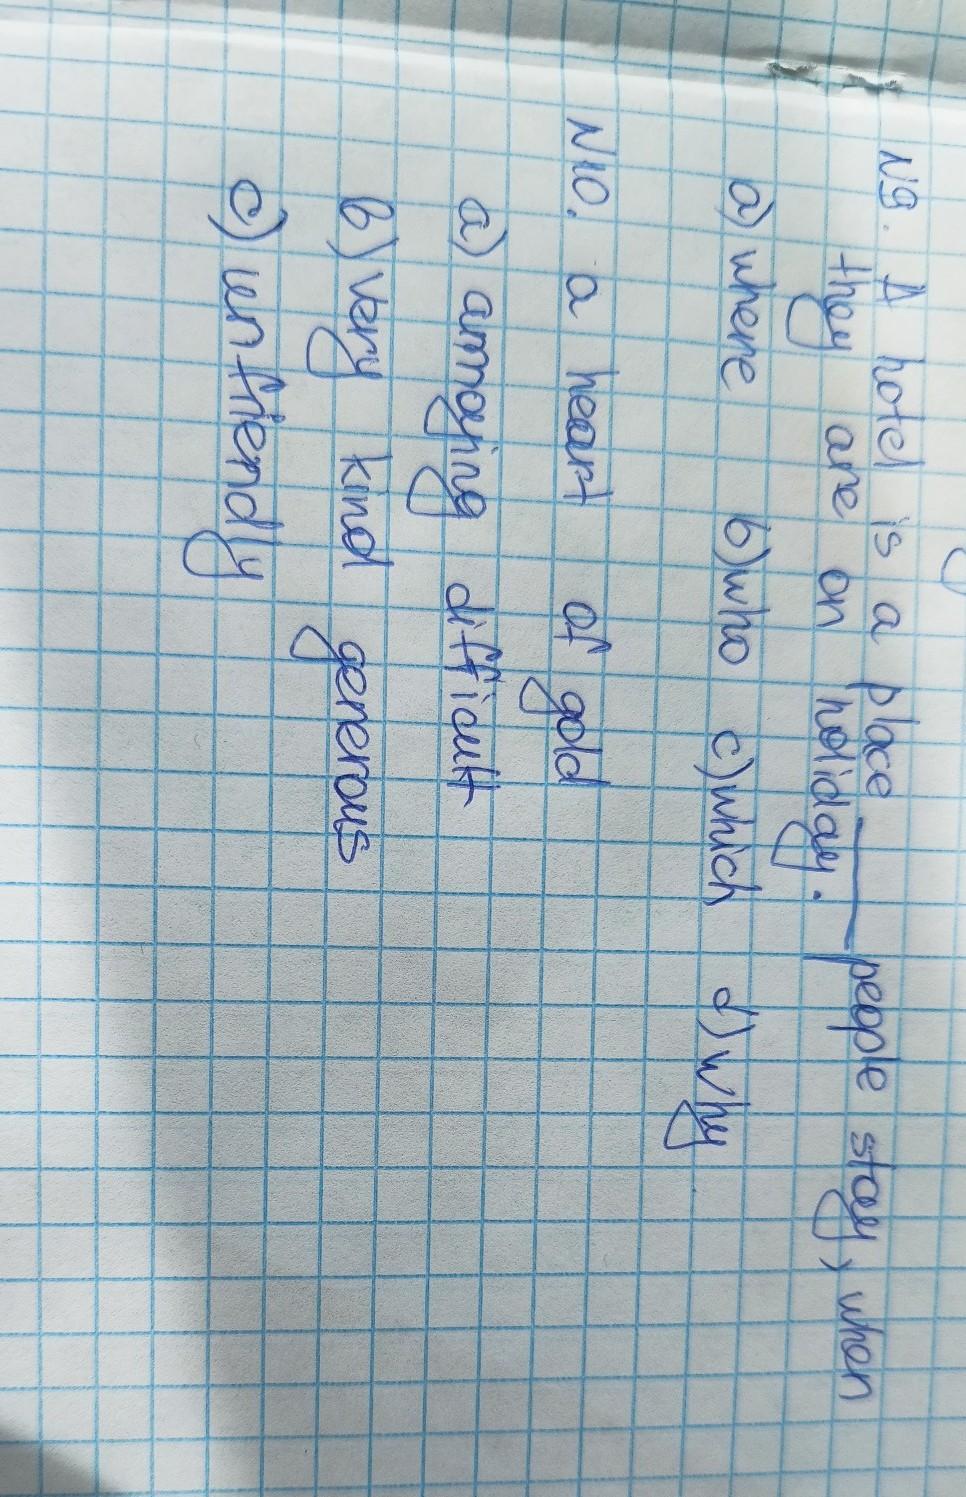 N9. A hotel is a place ____ people stay, when
they are on holiday.
a) where b) who c) which d) why
N10. a heart of gold
a) annoying difficult
b) very kind generous
c) unfriendly